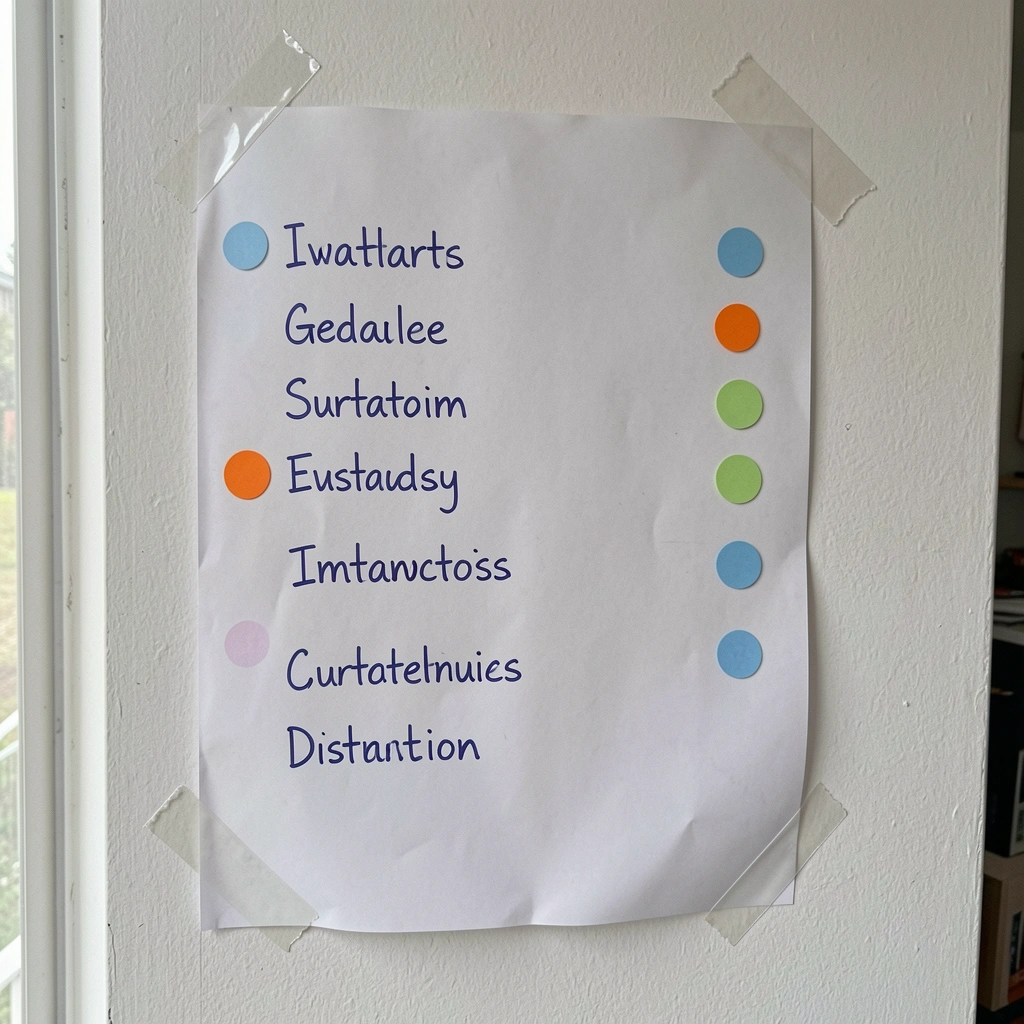 Iwatlarts
Gedaulee
Surtatoim
Eustaudsy
Imtanctoss
Curtatelnuies
Distantion